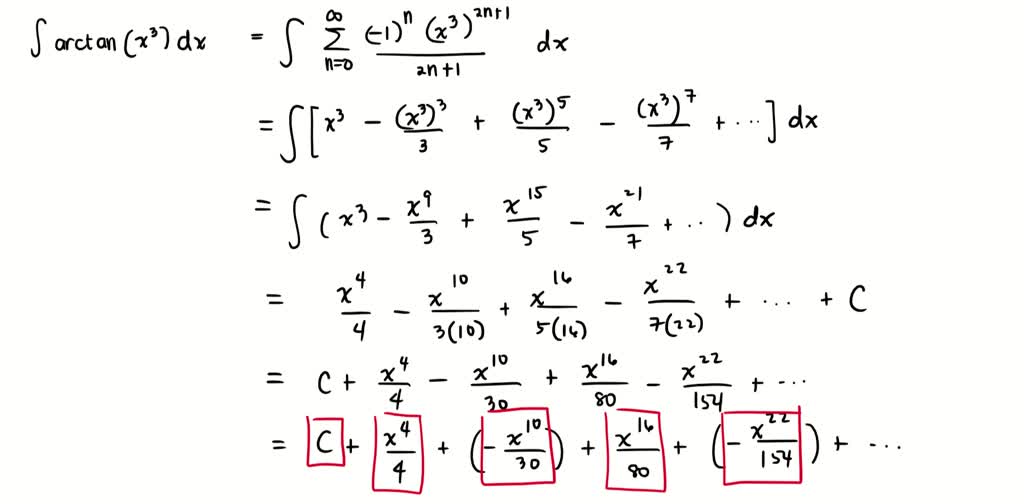 ∫ arctan (x³) dx = ∫ ∑_{n=0}^{∞} (-1)ⁿ (x³)²ⁿ⁺¹ / 2n+1 dx
= ∫ [ x³ - (x³)³/3 + (x³)⁵/5 - (x³)⁷/7 + ··· ] dx
= ∫ ( x³ - x⁹/3 + x¹⁵/5 - x²¹/7 + ·· ) dx
= x⁴/4 - x¹⁰/3(10) + x¹⁶/5(16) - x²²/7(22) + ··· + C
= C + x⁴/4 - x¹⁰/30 + x¹⁶/80 - x²²/154 + ···
= C + x⁴/4 + (- x¹⁰/30) + x¹⁶/80 + (- x²²/154) + ···